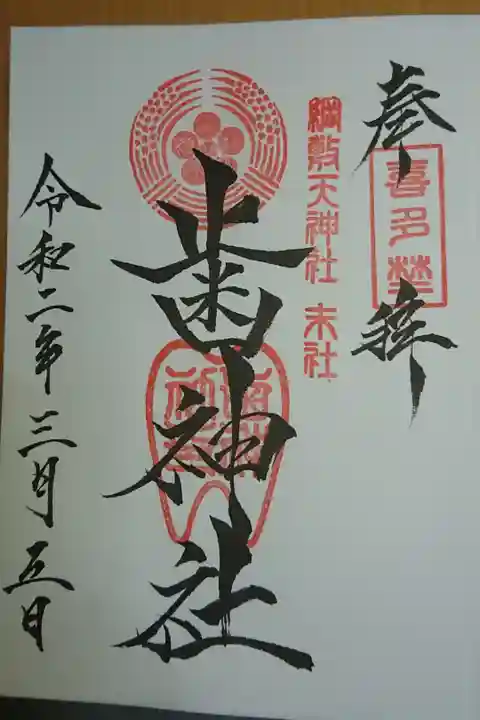 奉拝
喜多埜
綱敷天神社 末社
歯神社
令和二年三月五日